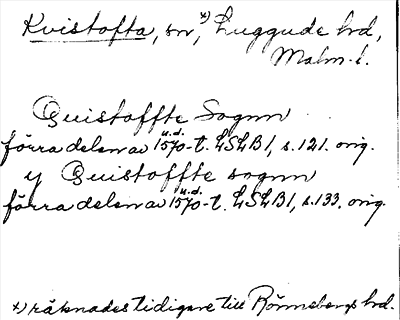 Kvistofta, sn,ˣ⁾ Luggude hrd,
Malm. l.
Quistoffte Sognn
förra delen av u.d. 1570-t. LSLB1, s.121. orig.
y Quistoffte sognn
förra delen av u.d. 1570-t. LSLB1, s.133. orig.
x) räknades tidigare till Rönnebergs hrd.